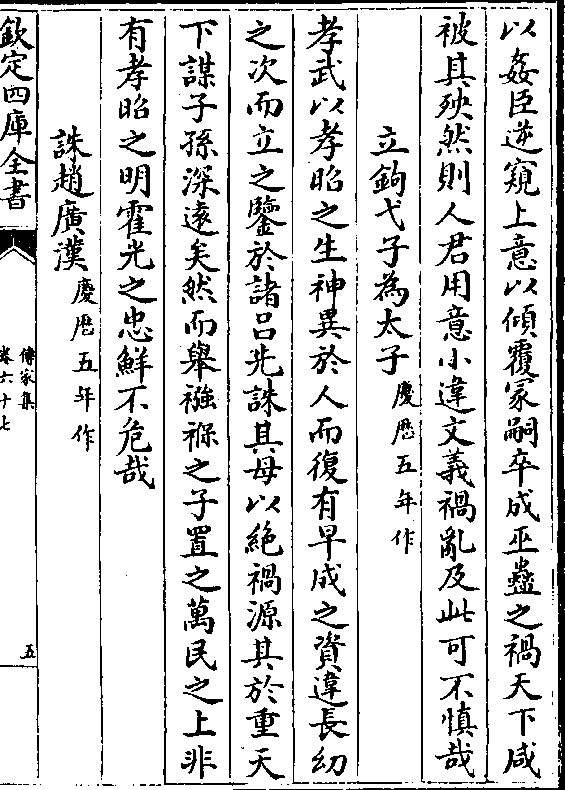 以姦臣逆窺上意以傾覆冢嗣卒成巫蠱之禍天下咸
被其殃然則人君用意小違文義禍亂及此可不慎哉
立鉤弋子為太子慶厯五年作
孝武以孝昭之生神異於人而復有早成之資違長幼
之次而立之鑒於諸呂先誅其母以絶禍源其於重天
下謀子孫深遠矣然而舉襁褓之子置之萬民之上非
有孝昭之明霍光之忠鮮不危哉
誅趙廣漢慶厯五年作
欽定四庫全書
傳家集
卷六十七
五